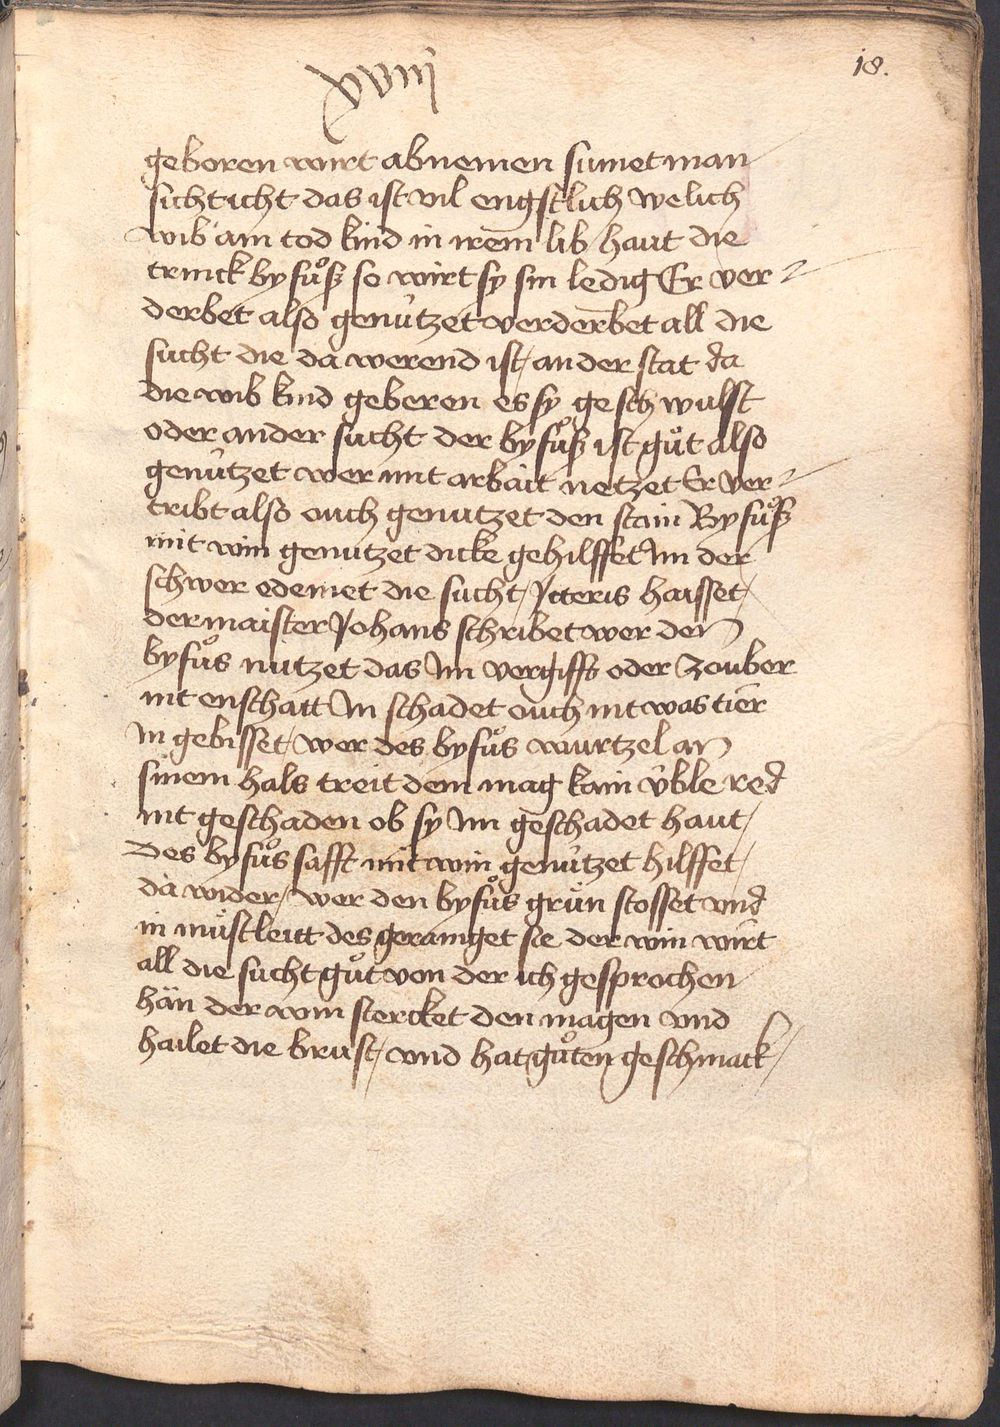 xviij
18.
geboren wirt abnemen sumet man
sich icht das ist vil engstlich welich
wib ain tod kind in irem lib haut die
trinck byfuͦß so wirt sy sin ledig Er ver-
derbet also genützet verderbet all die
sucht die da werend ist / an der stat da
die wib kind geberen es sy geschwulst
oder ander sucht der byfuͦß ist guͦt also
genützet wer mit arbait netzet Er ver-
tribt also ouch genutzet den stain Byfuͦß
mit win genutzet dicke gehilffet Im der
schwer edemet die sucht / Icteris haisset /
der maister Johans schribet wer den
byfuͦs nutzet das Im vergifft oder zouber
nit enschatt In schadet ouch nit was tier
In gebisset / wer des byfuͦs wurtzel an
sinem hals treit dem mag kain üble red
nit geschaden ob sy Im geschadet haut /
Des byfuͦs safft mit win genützet hilffet /
da wider / wer den byfuͦs grün stosset vnd
in müst leitt des gerainget sie der win wirt
all die sucht guͦt von der ich gesprochen
hän der win stercket den magen vnd
hailet die brust / vnd hat guͦten geschmack /